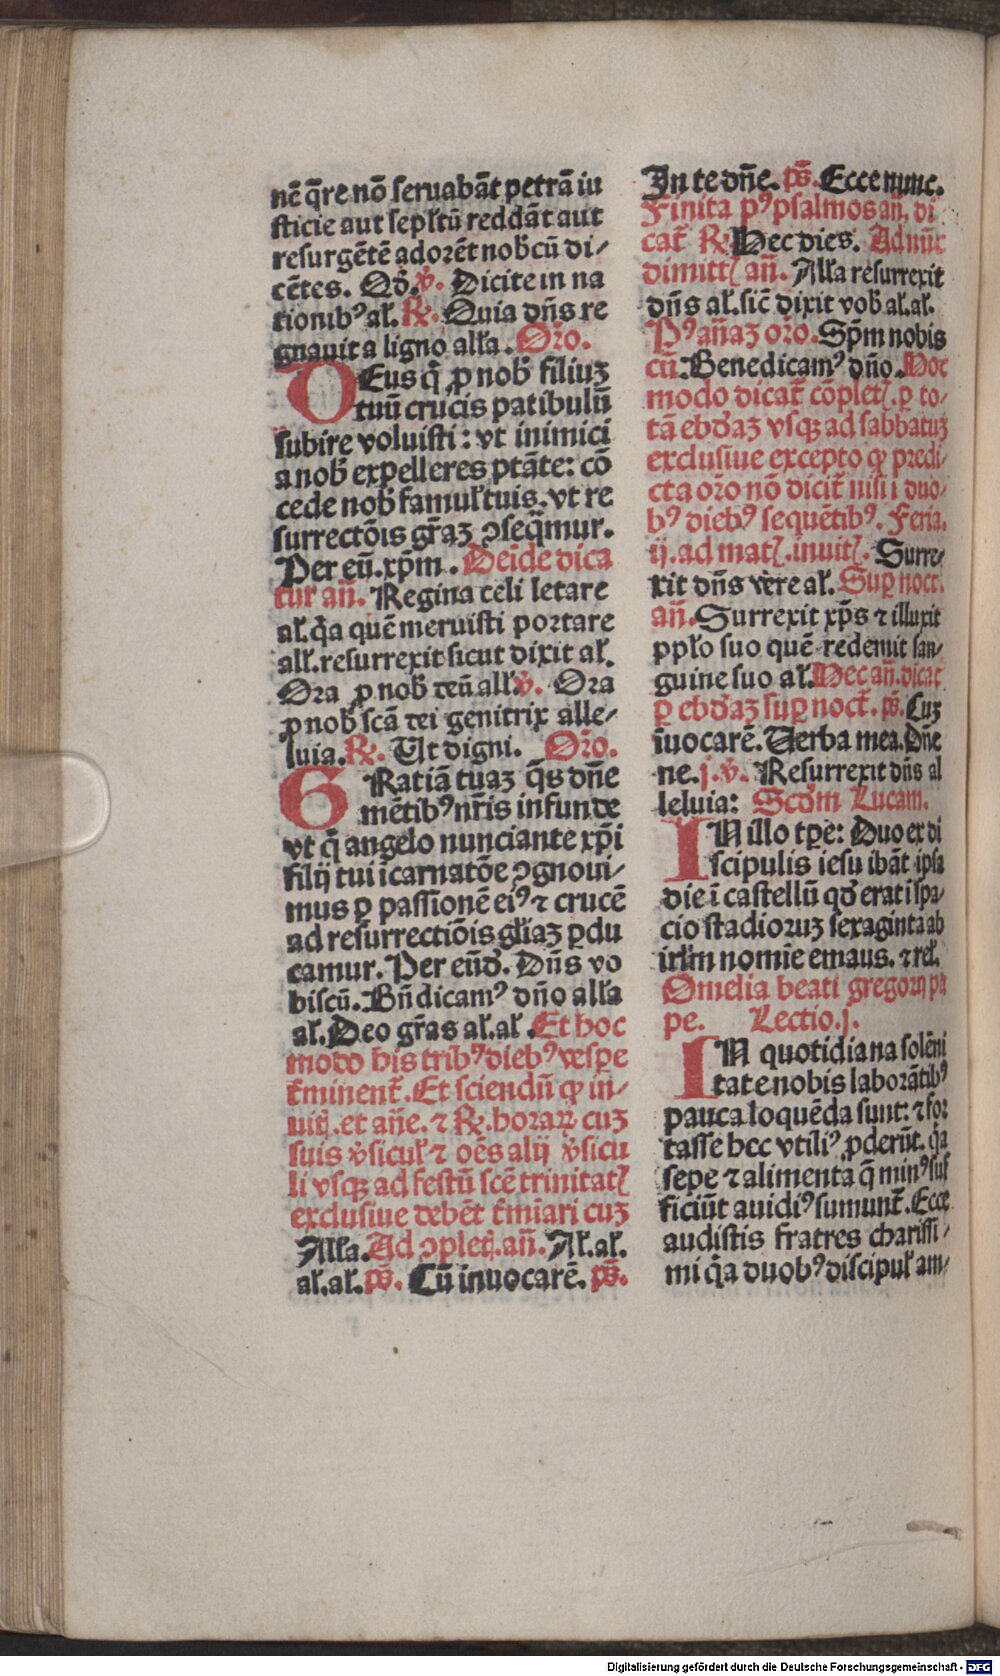 nē q̄re nō seruabāt petrā iu
sticie aut sepltū reddāt aut
resurgētē adorēt nob̄cū di-
cētes. Qđ. ℣. Dicite in na
tionibꝰ al̄. ℟. Quia dn̄s re
gnauit a ligno all̄a. Or̄o.
DEus q̄ ꝓ nob̄ filiuʒ
tuū crucis patibulū
subire voluisti: vt inimici
a nob̄ expelleres ptāte: cō
cede nob̄ famul̄ tuis. vt re
surrectōis gr̄aʒ ↄseq̄mur.
Per eū. xp̄m. Deīde dica
tur an̄. Regina celi letare
al̄. q̄a quē meruisti portare
all̄. resurrexit sicut dixit al̄.
Ora ꝓ nob̄ deū all̄. ℣. Ora
ꝓ nob̄ scā dei genitrix alle-
luia. ℟. Ut digni. Or̄o.
GRatiā tuaʒ q̄s dn̄e
mētibꝰ nr̄is infunde
vt q̄ angelo nunciante xp̄i
filij tui īcarnatōe ↄgnoui-
mus ꝑ passionē eiꝰ ⁊ crucē
ad resurrectiōis gl̄iaʒ ꝑdu
camur. Per eūđ. Dn̄s vo
biscū. Bn̄dicamꝰ dn̄o all̄a
al̄. Deo gr̄as al̄. al̄. Et hoc
modo his tribꝰ diebꝰ vespe
t̄minent̄. Et sciendū ꝙ in-
uitį. et an̄e. ⁊ ℟. horaꝝ cuʒ
suis v̄sicul̄ ⁊ oēs alij v̄sicu
li vsqʒ ad festū scē trinitatꝭ
exclusiue debēt t̄mīari cuʒ
All̄a. Ad ↄpletį. an̄. Al̄. al̄.
al̄. al̄. ps̄. Cū inuocarē. ps̄.
In te dn̄e. ps̄. Ecce nunc.
Finita pꝰ psalmos an̄. di
cat̄ ℟. Hec dies. Ad nūc
dimittꝭ an̄. All̄a resurrexit
dn̄s al̄. sic̄ dixit vob̄ al̄. al̄.
Pꝰ an̄aʒ or̄o. Sp̄m nobis
cū. Benedicamꝰ dn̄o. Hoc
modo dicat̄ cōpletꝭ. ꝑ to-
tā ebđaʒ vsqʒ ad sabbatuʒ
exclusiue excepto ꝙ predi-
cta or̄o nō dicit̄ nisi ī duo-
bꝰ diebꝰ sequētibꝰ. Feria.
ij. ad matꝭ. inuitꝭ. Surre-
xit dn̄s vere al̄. Suꝑ noct.
an̄. Surrexit xp̄s ⁊ illuxit
pplo suo quē redemit san-
guine suo al̄. Hec an̄. dicat̄
ꝑ ebđaʒ suꝑ noct̄. ps̄. Cuʒ
īuocarē. Uerba mea. Dn̄e
ne. j. ℣. Resurrexit dn̄s al
leluia: Scđm Lucam.
IN illo tꝑe: Duo ex di
scipulis iesu ibāt ipsa
die ī castellū qđ erat ī spa-
cio stadioruʒ sexaginta ab
irl̄m nomīe emaus. ⁊ rel̄.
Omelia beati gregorij pa
pe. Lectio. j.
IN quotidiana solēni
tate nobis laborātibꝰ
pauca loquēda sunt: ⁊ for
tasse hec vtiliꝰ ꝓderūt. q̄a
sepe ⁊ alimenta q̄ minꝰ suf
ficiūt auidiꝰ sumunt̄. Ecce
audistis fratres charissi-
mi q̄a duobꝰ discipul̄ am-
Digitalisierung gefördert durch die Deutsche Forschungsgemeinschaft - DFG